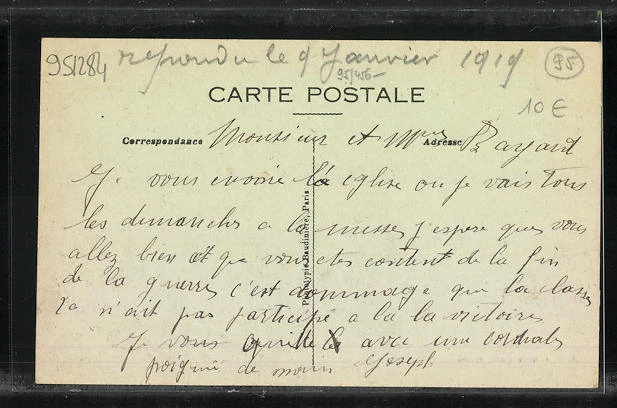 951284 repondu le 9 Janvier 1919 95
95/456-
10 €
CARTE POSTALE
Correspondance Adresse
Monsieur et Mme Bayard
Je vous envoire la eglise ou je vais tous
les dimanches a la messe j'espere que vous
allez bien et que vous etes content de la fin
de la guerre c'est dommage que la classe
n'ait pas participé a la la victoire
Je vous quitte avec une cordiale
poigné de main Joseph
Phototypie Baudinière, Paris